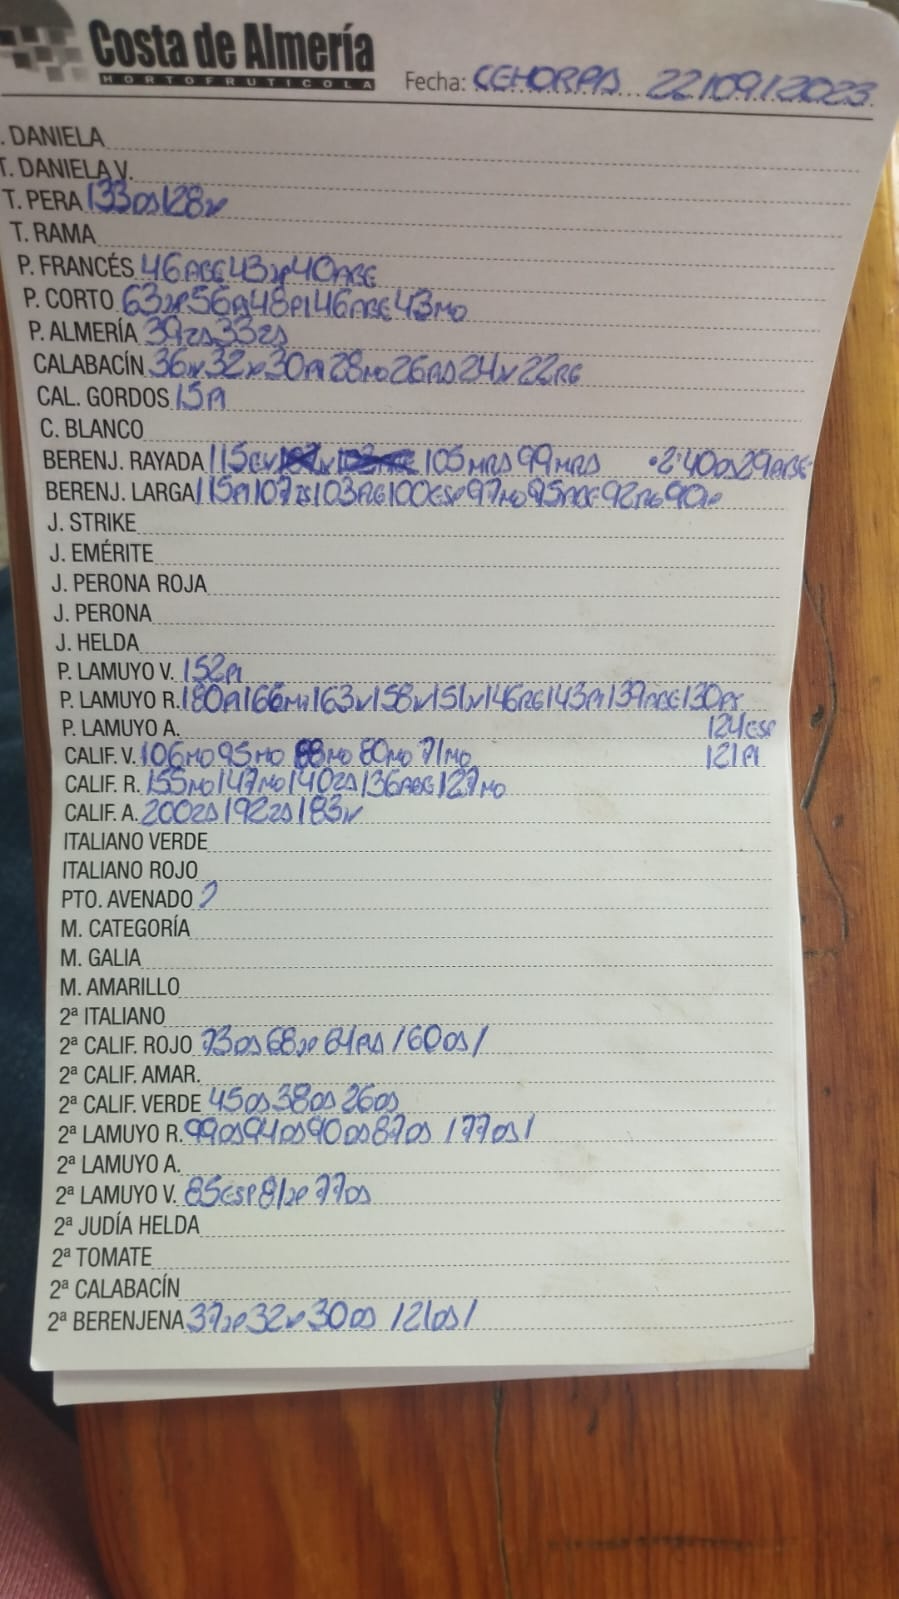 Costa de Almería
HORTOFRUTICOLA
Fecha: CEHORPA 22/09/2023
. DANIELA
T. DANIELA V.
T. PERA 133OS128
T. RAMA
P. FRANCÉS 46ABE43JP40ABE
P. CORTO 63JP56 48PI46ABE43MO
P. ALMERÍA 39ZS33ZS
CALABACÍN 36 32JP30PI28MO26 24 22
CAL. GORDOS 15PI
C. BLANCO
BERENJ. RAYADA 115 105MRS99MRS
BERENJ. LARGA 115PI107ZS103 100ESP97MO95ABE92 90JP
J. STRIKE
J. EMÉRITE
J. PERONA ROJA
J. PERONA
J. HELDA
P. LAMUYO V. 152PI
P. LAMUYO R. 180PI166 163 158 151 146 143PI139ABE130
P. LAMUYO A. 124ESP
CALIF. V. 106MO95MO 88MO 80MO 71MO 121PI
CALIF. R. 155MO147MO140ZS136ABE127MO
CALIF. A. 200ZS192ZS183
ITALIANO VERDE
ITALIANO ROJO
PTO. AVENADO
M. CATEGORÍA
M. GALIA
M. AMARILLO
2ª ITALIANO
2ª CALIF. ROJO 73OS68JP64 /60OS/
2ª CALIF. AMAR.
2ª CALIF. VERDE 45OS38OS26OS
2ª LAMUYO R. 99OS94OS90OS87OS /77OS/
2ª LAMUYO A.
2ª LAMUYO V. 85ESP81JP77OS
2ª JUDÍA HELDA
2ª TOMATE
2ª CALABACÍN
2ª BERENJENA 37JP32 30OS /21OS/